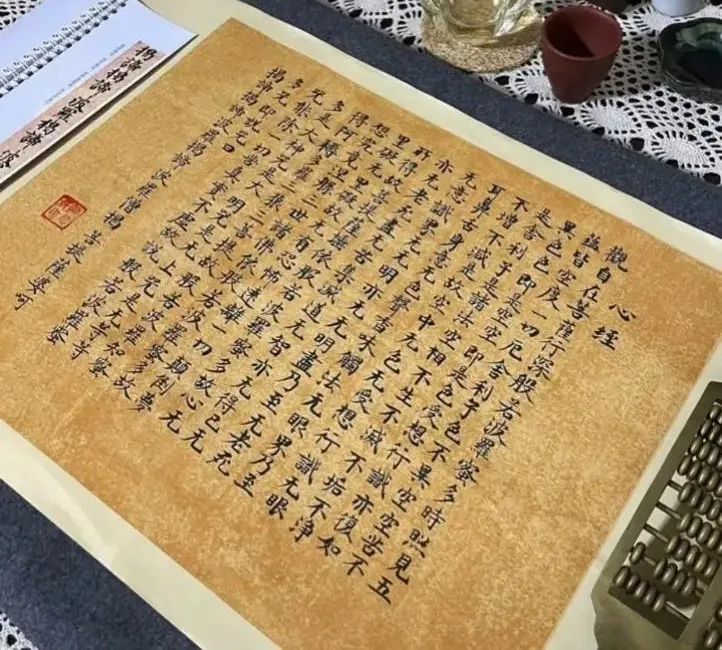 心經
觀自在菩薩行深般若波羅蜜多時照見五
蘊皆空度一切厄舍利子色不異空空不
異色色即是空空即是色受想行識亦復如
是舍利子是諸法空相不生不滅不垢不淨
不增不減是故空中无色无受想行識无眼
耳鼻舌身意无色聲香味觸法无眼界乃至
无意識界无无明亦无无明盡乃至无老死
亦无老死盡无苦集滅道无智亦无得以无
所得故菩提薩埵依般若波羅蜜多故心无
罣礙无罣礙故无有恐怖遠離一切顛倒夢
想究竟涅槃三世諸佛依般若波羅蜜多故
得阿耨多羅三藐三菩提故知般若波羅蜜
多是大神咒是大明咒是无上咒是无等等
咒能除一切苦真實不虛故說般若波羅蜜
多咒即說咒曰
揭諦揭諦 波羅揭諦 波羅僧揭諦 菩提薩婆訶
揭諦揭諦 波羅揭諦 波